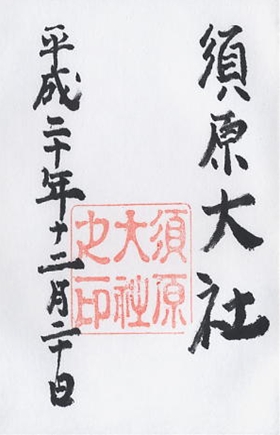 須原大社
須原
大社
之印
平成二十年十二月二十日